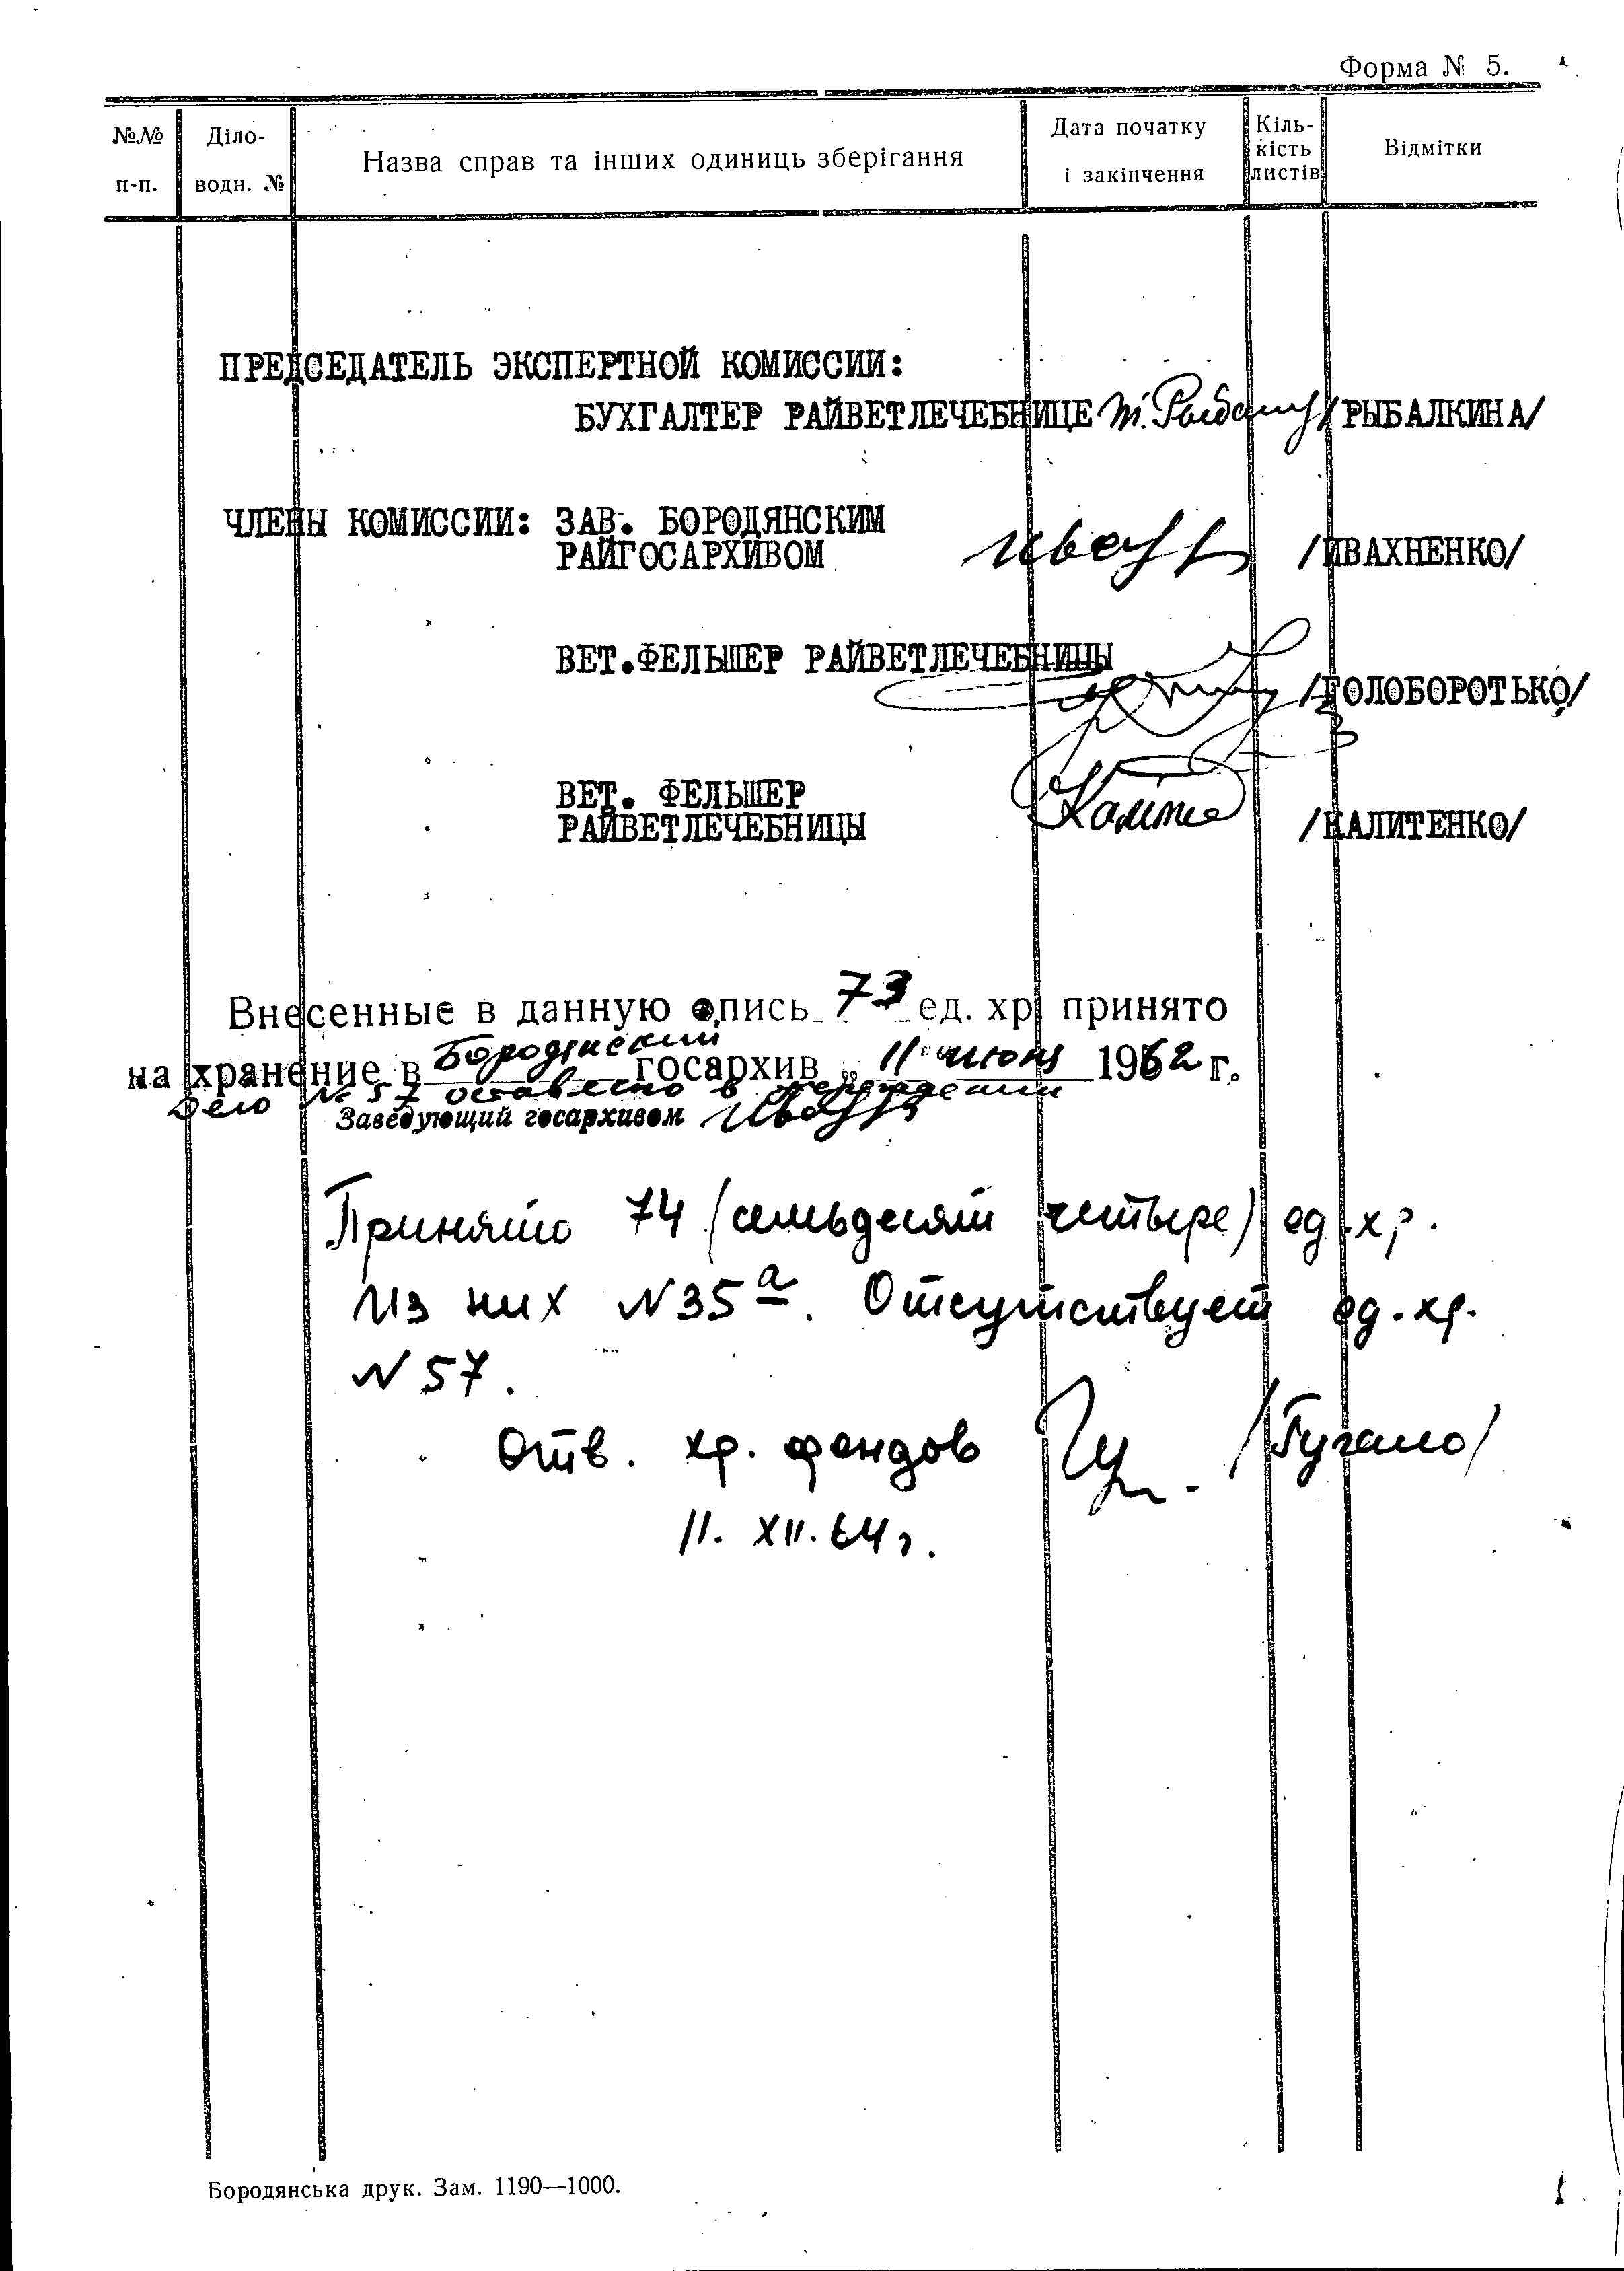 Форма № 5.
№№ п-п.
Діло- водн. №
Назва справ та інших одиниць зберігання
Дата початку і закінчення
Кіль- кість листів
Відмітки
ПРЕДСЕДАТЕЛЬ ЭКСПЕРТНОЙ КОМИССИИ:
БУХГАЛТЕР РАЙВЕТЛЕЧЕБНИЦЕ /РЫБАЛКИНА/
ЧЛЕНЫ КОМИССИИ: ЗАВ. БОРОДЯНСКИМ
РАЙГОСАРХИВОМ /ИВАХНЕНКО/
ВЕТ.ФЕЛЬШЕР РАЙВЕТЛЕЧЕБНИЦЫ
/ГОЛОБОРОТЬКО/
ВЕТ. ФЕЛЬШЕР
РАЙВЕТЛЕЧЕБНИЦЫ /КАЛИТЕНКО/
Внесенные в данную опись 73 ед. хр. принято
на хранение в Бородянский госархив „ 11 " июня 1962 г.
Дело № 57 оставлено в учреждении
Заведующий госархивом
Принято 74 (семьдесят четыре) ед. хр.
Из них N35а. Отсутствует ед. хр.
N 57.
Отв. хр. фондов
11. XII. 64 г.
Бородянська друк. Зам. 1190—1000.